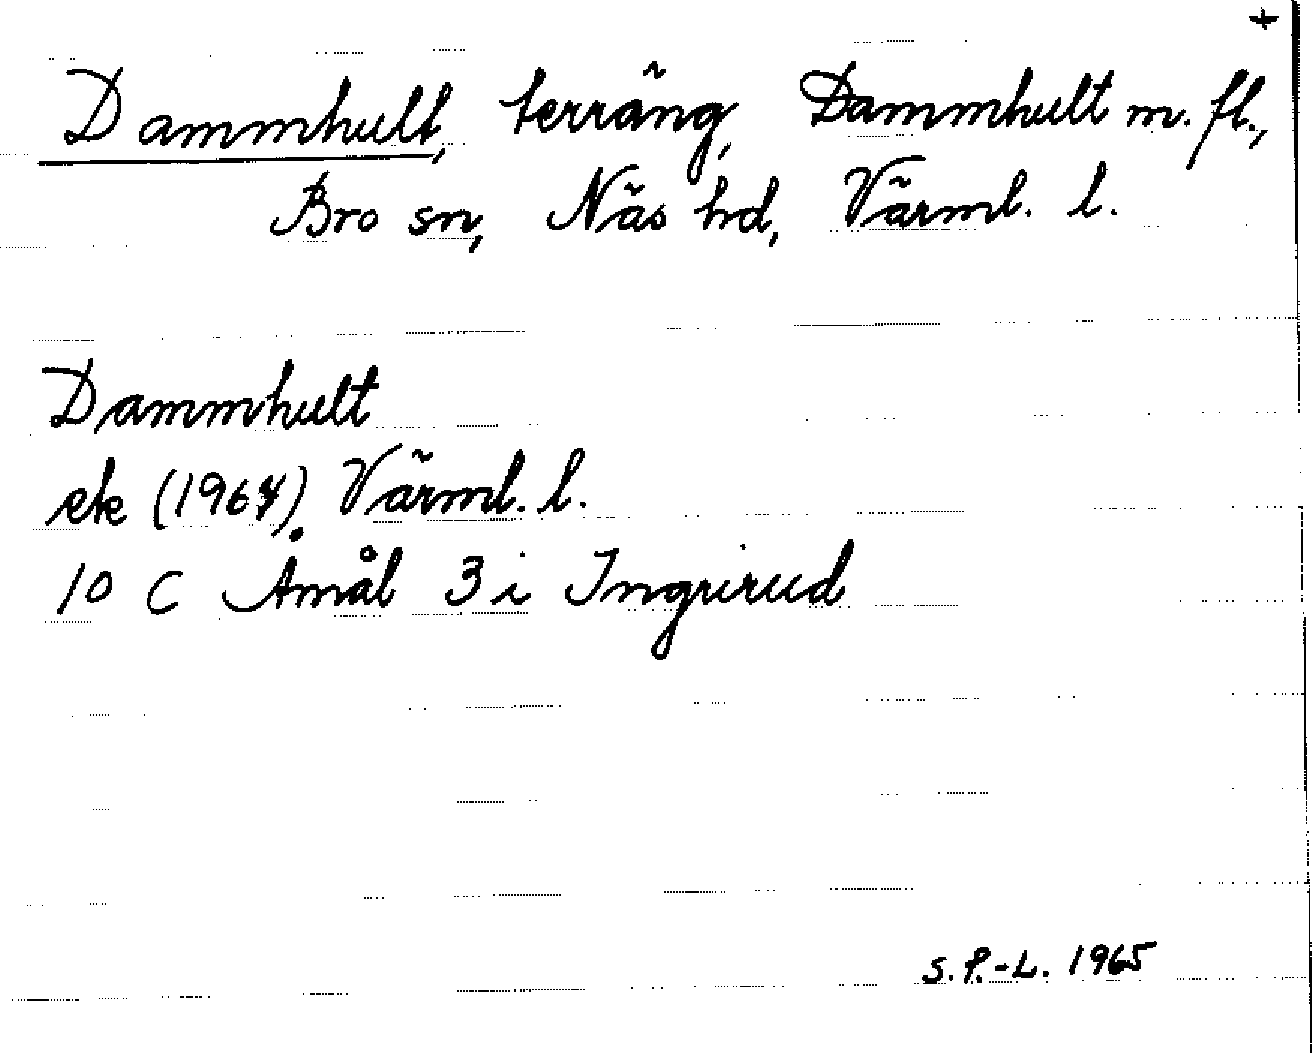 +
Dammhult, terräng, Dammhult m. fl.,
Bro sn, Näs hd, Värml. l.
Dammhult
ek (1964). Värml. l.
10 C Åmål 3 i Ingrirud
S. P.-L. 1965